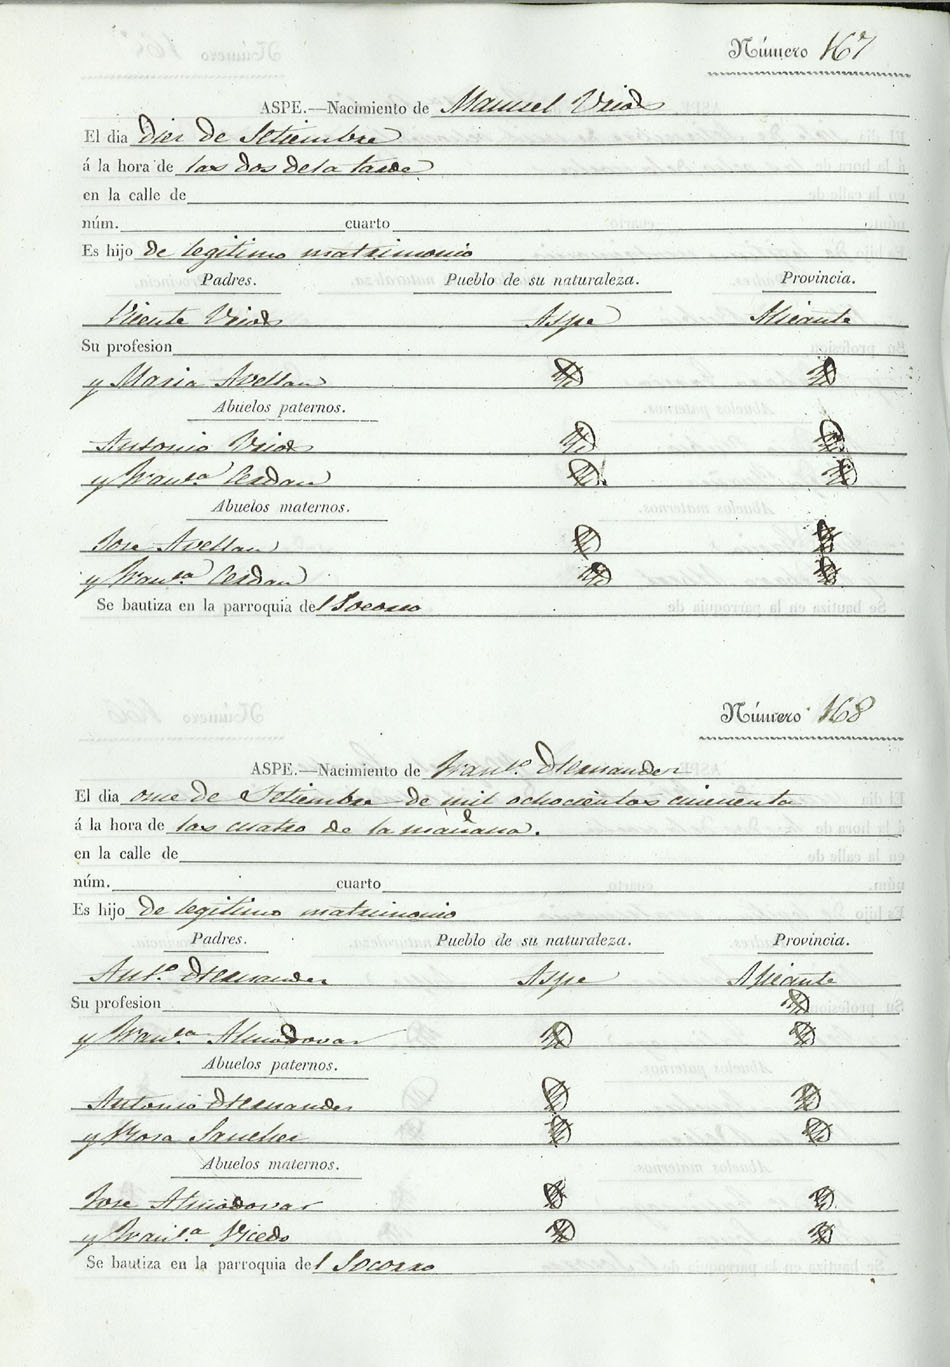 Número 167
ASPE.—Nacimiento de Manuel Urios
El dia diez de Setiembre
á la hora de las dos de la tarde
en la calle de
núm. cuarto
Es hijo de legitimo matrimonio
Padres. Pueblo de su naturaleza. Provincia.
Vicente Urios Aspe Alicante
Su profesion
y Maria Avellan
Abuelos paternos.
Antonio Urios
y Fran.ca Cerdan
Abuelos maternos.
Jose Avellan
y Fran.ca Cerdan
Se bautiza en la parroquia del Socorro
Número 168
ASPE.—Nacimiento de Fran.co Hernandez
El dia once de Setiembre de mil ochocientos cincuenta
á la hora de las cuatro de la mañana.
en la calle de
núm. cuarto
Es hijo de legitimo matrimonio
Padres. Pueblo de su naturaleza. Provincia.
Ant.o Hernandez Aspe Alicante
Su profesion
y Fran.ca Almodovar
Abuelos paternos.
Antonio Hernandez
y Rosa Sanchez
Abuelos maternos.
Jose Almodovar
y Fran.ca Vicedo
Se bautiza en la parroquia del Socorro